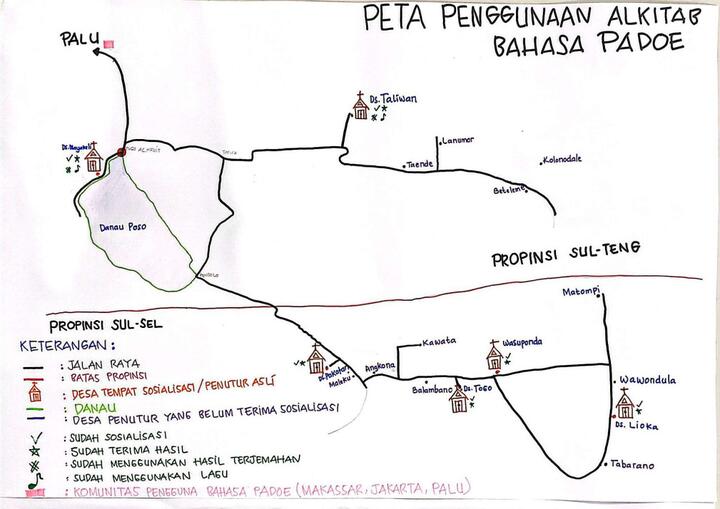 PETA PENGGUNAAN ALKITAB
BAHASA PADOE
PALU
Ds. Taliwan
Lanumor
Taende
Kolonodale
Beteleme
Danau Poso
PROPINSI SUL-TENG
PROPINSI SUL-SEL
Matompi
Kawata
Wasuponda
Angkona
Maleku
Balambano
Ds. Togo
Wawondula
Ds. Lioka
Tabarano
KETERANGAN :
: JALAN RAYA
: BATAS PROPINSI
: DESA TEMPAT SOSIALISASI/PENUTUR ASLI
: DANAU
: DESA PENUTUR YANG BELUM TERIMA SOSIALISASI
: SUDAH SOSIALISASI
: SUDAH TERIMA HASIL
: SUDAH MENGGUNAKAN HASIL TERJEMAHAN
: SUDAH MENGGUNAKAN LAGU
: KOMUNITAS PENGGUNA BAHASA PADOE (MAKASSAR, JAKARTA, PALU)